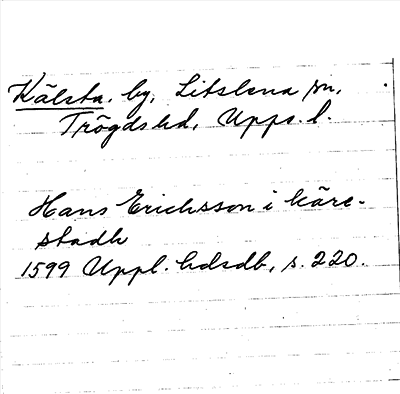 Kälsta, by, Litslena sn,
Trögds hd, Upps. l.
Hans Erichsson i Käre-
stadh
1599 Uppl. hdsdb, s. 220.